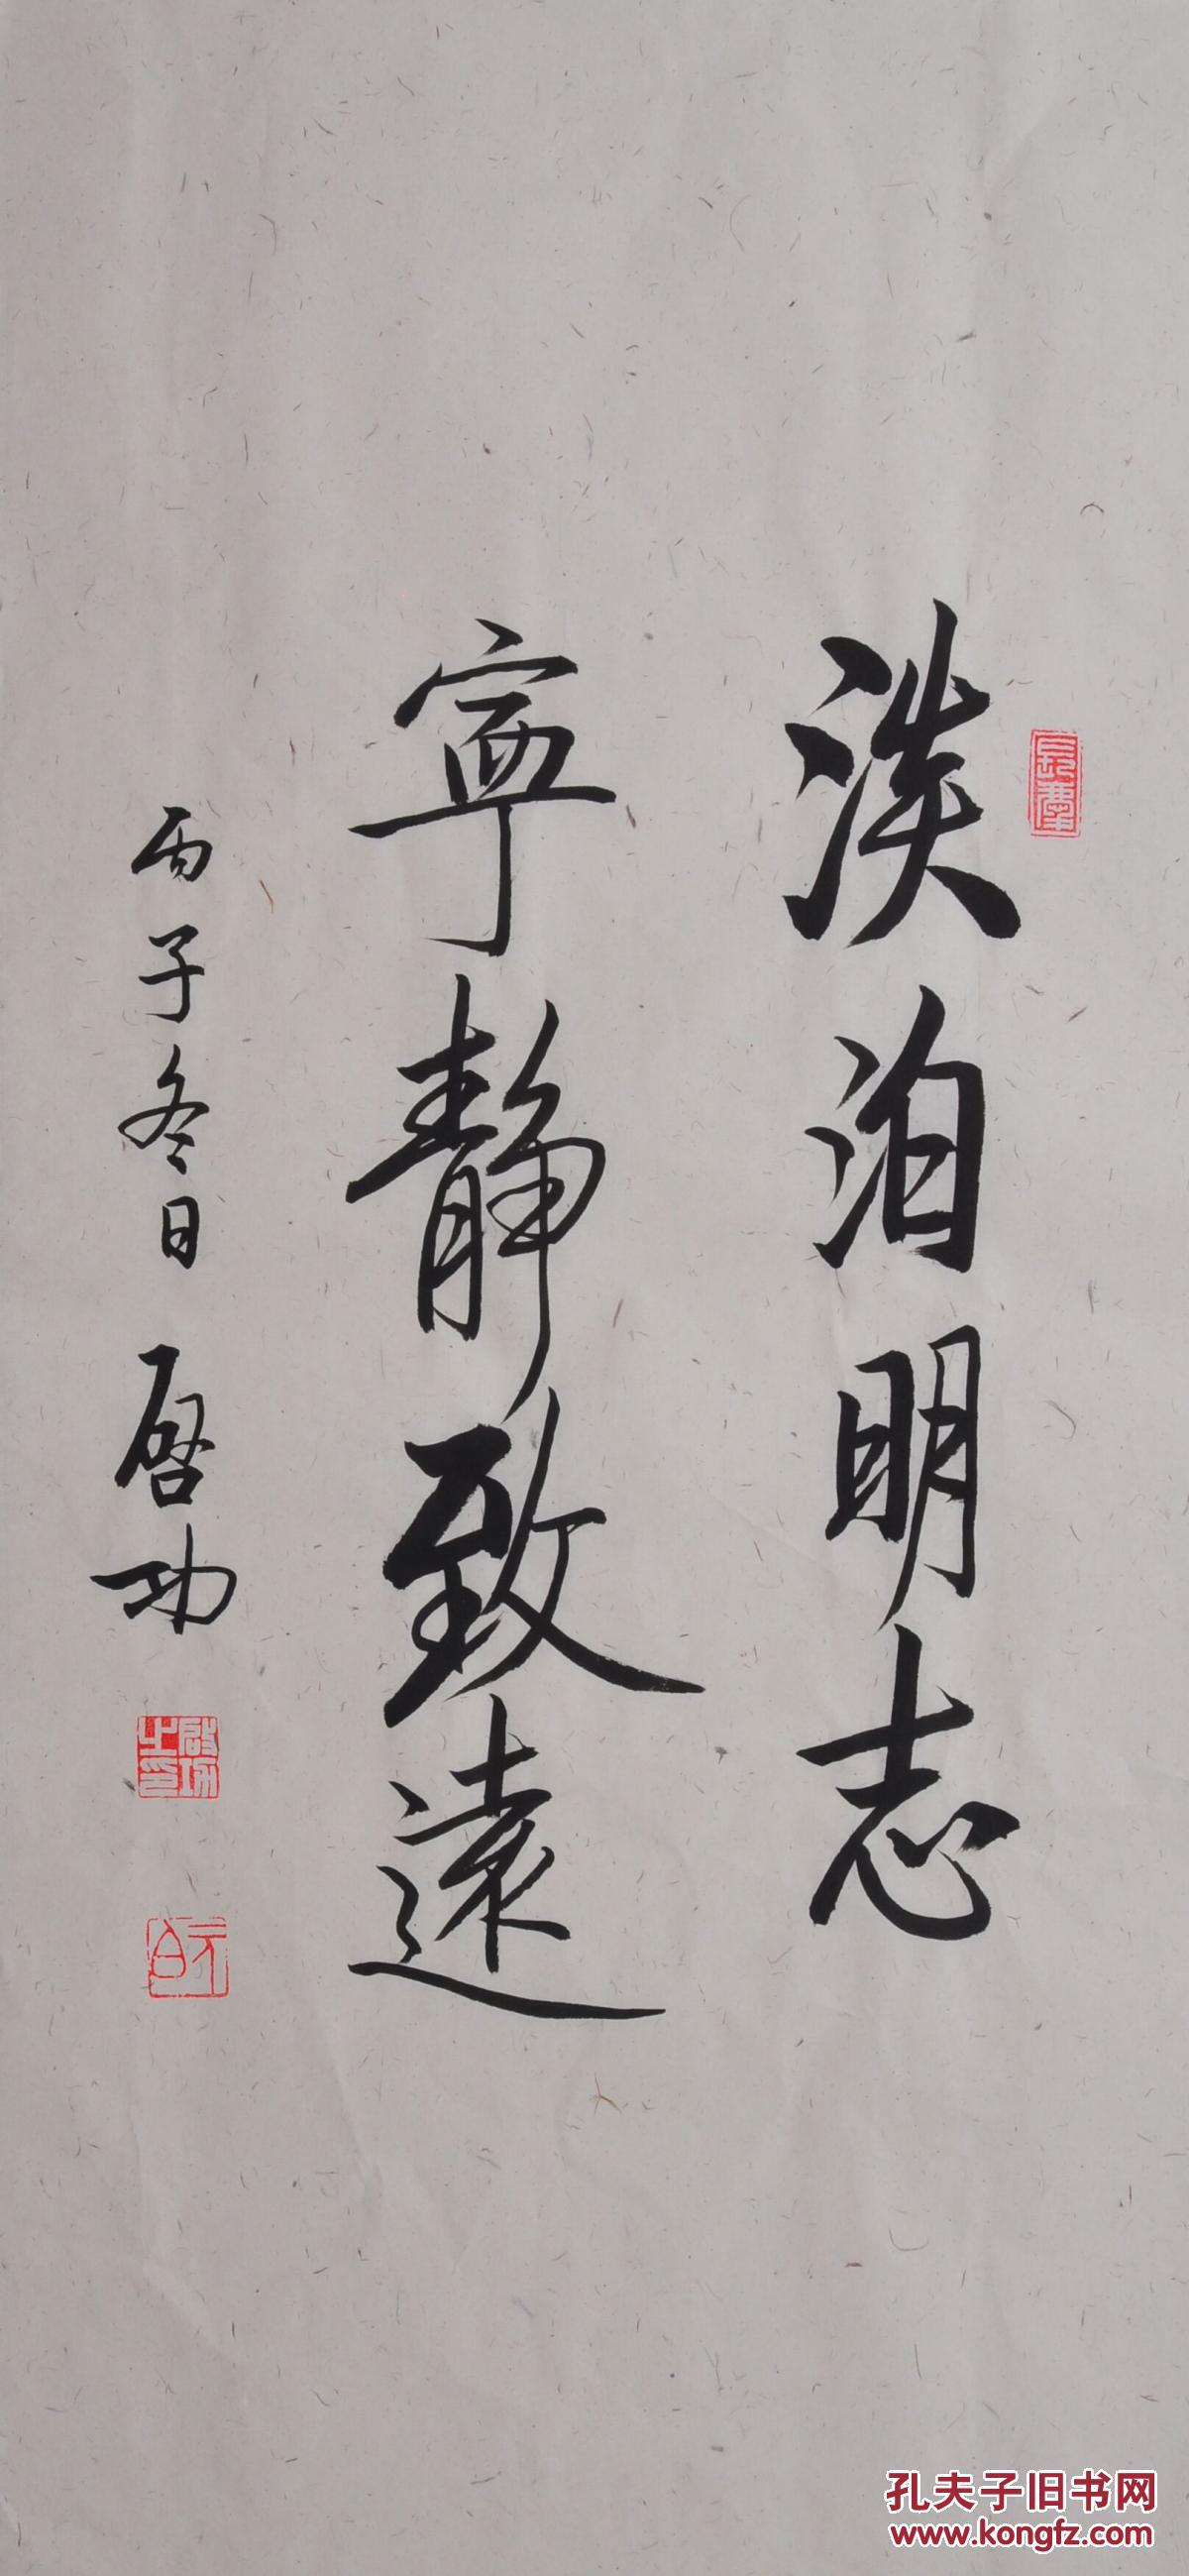 淡泊明志
寧靜致遠
丙子冬日 啓功
啟功之印
元白
孔夫子旧书网
www.kongfz.com